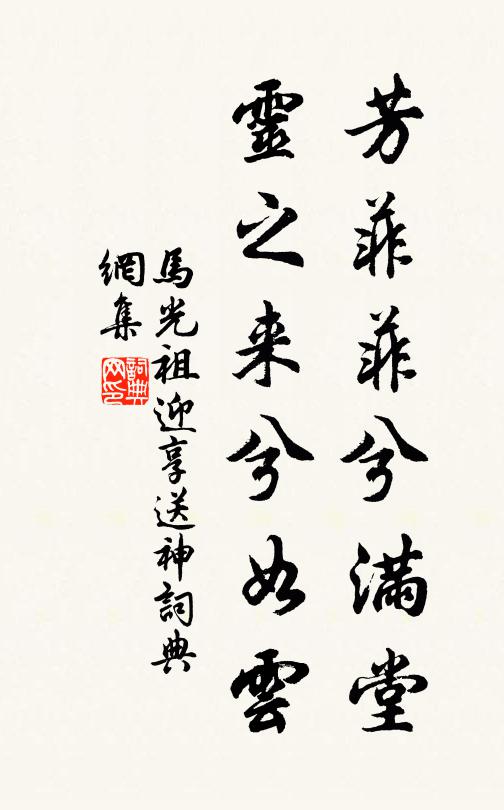 芳菲菲兮滿堂
靈之来兮如雲
馬光祖迎享送神詞典
網集
詞典
网印